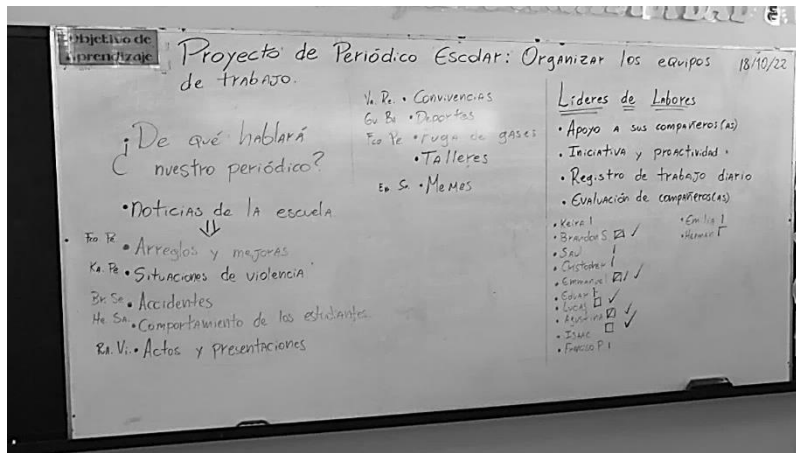 Objetivo de
aprendizaje
Proyecto de Periódico Escolar: Organizar los equipos
de trabajo.
18/10/22
¿De qué hablará
nuestro periódico?
• Noticias de la escuela
Fco Pe • Arreglos y mejoras
Ka. Pe • Situaciones de violencia
Br. Se. • Accidentes
He Sa. • Comportamiento de los estudiantes
Ra. Vi. • Actos y presentaciones
Va. Re. • Convivencias
Gu Ba • Deportes
Fco Pe • Fuga de gases
• Talleres
Em Sa. • Memes
Líderes de Labores
• Apoyo a sus compañeros(as)
• Iniciativa y proactividad.
• Registro de trabajo diario
• Evaluación de compañeros(as)
• Keira
• Brandon S
• Saul
• Cristopher
• Emmanuel
• Eduar
• Lucas
• Agustina
• Isaac
• Francisco P
• Emilia
• Herman